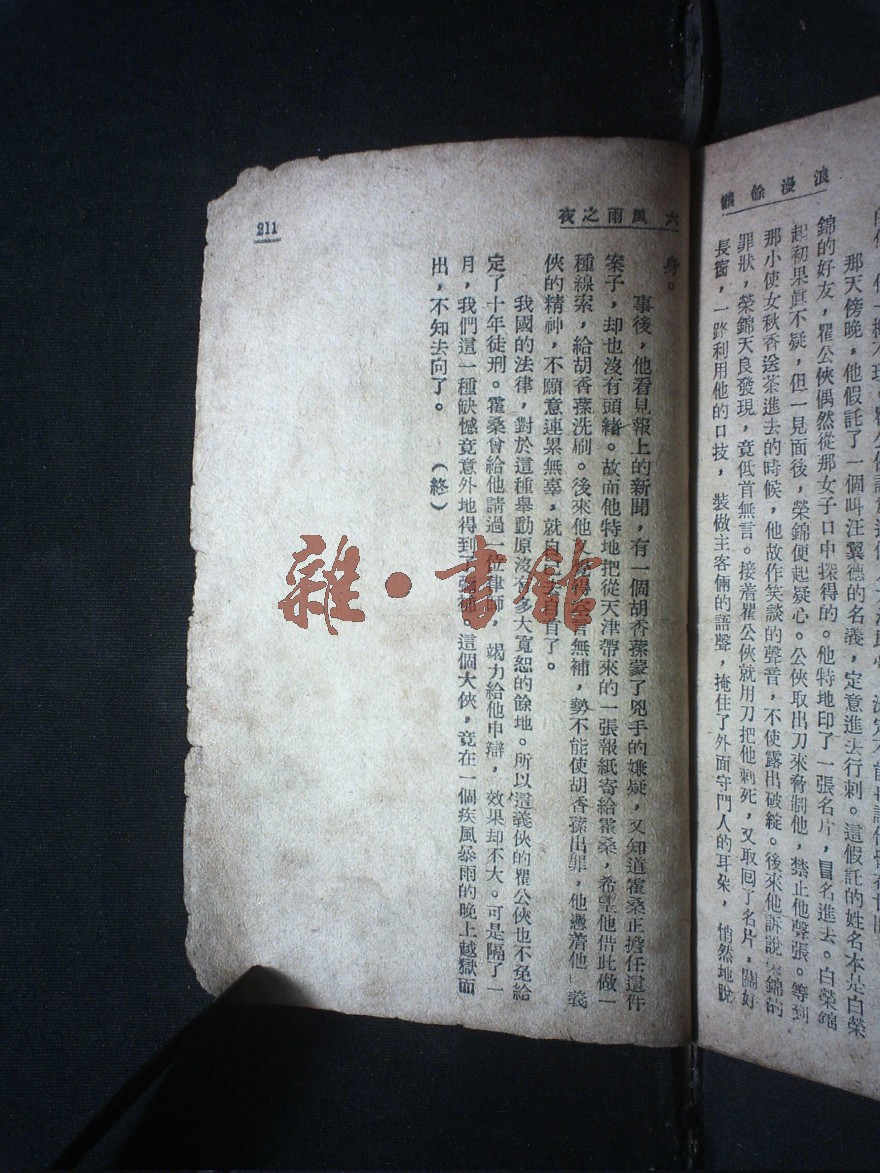 浪漫餘韻
那天傍晚，他假託了一個叫汪翼德的名義，定意進去行刺。這假託的姓名本是白榮
錦的好友，瞿公俠偶然從那女子口中探得的。他特地印了一張名片，冒名進去。白榮錦
起初果眞不疑，但一見面後，榮錦便起疑心。公俠取出刀來脅制他，禁止他聲張。等到
那小使女秋香送茶進去的時候，他故作笑談的聲音，不使露出破綻。後來他訴說榮錦的
罪狀，榮錦天良發現，竟低首無言。接着瞿公俠就用刀把他刺死，又取回了名片，關好
長窗，一路利用他的口技，裝做主客倆的語聲，掩住了外面守門人的耳朵，悄然地脫
六 風雨之夜
211
身。
事後，他看見報上的新聞，有一個胡香蓀蒙了兇手的嫌疑，又知道霍桑正擔任這件
案子，却也沒有頭緒。故而他特地把從天津帶來的一張報紙寄給霍桑，希望他借此做一
種線索，給胡香蓀洗刷。後來他覺得空言無補，勢不能使胡香蓀出罪，他憑着他義
俠的精神，不願意連累無辜，就自己去自首了。
我國的法律，對於這種舉動原沒有多大寬恕的餘地。所以這義俠的瞿公俠也不免給
定了十年徒刑。霍桑曾給他請過一位律師，竭力給他申辯，效果却不大。可是隔了一
月，我們這一種缺憾竟意外地得到了彌補。這個大俠，竟在一個疾風暴雨的晚上越獄而
出，不知去向了。（終）
雜·書館